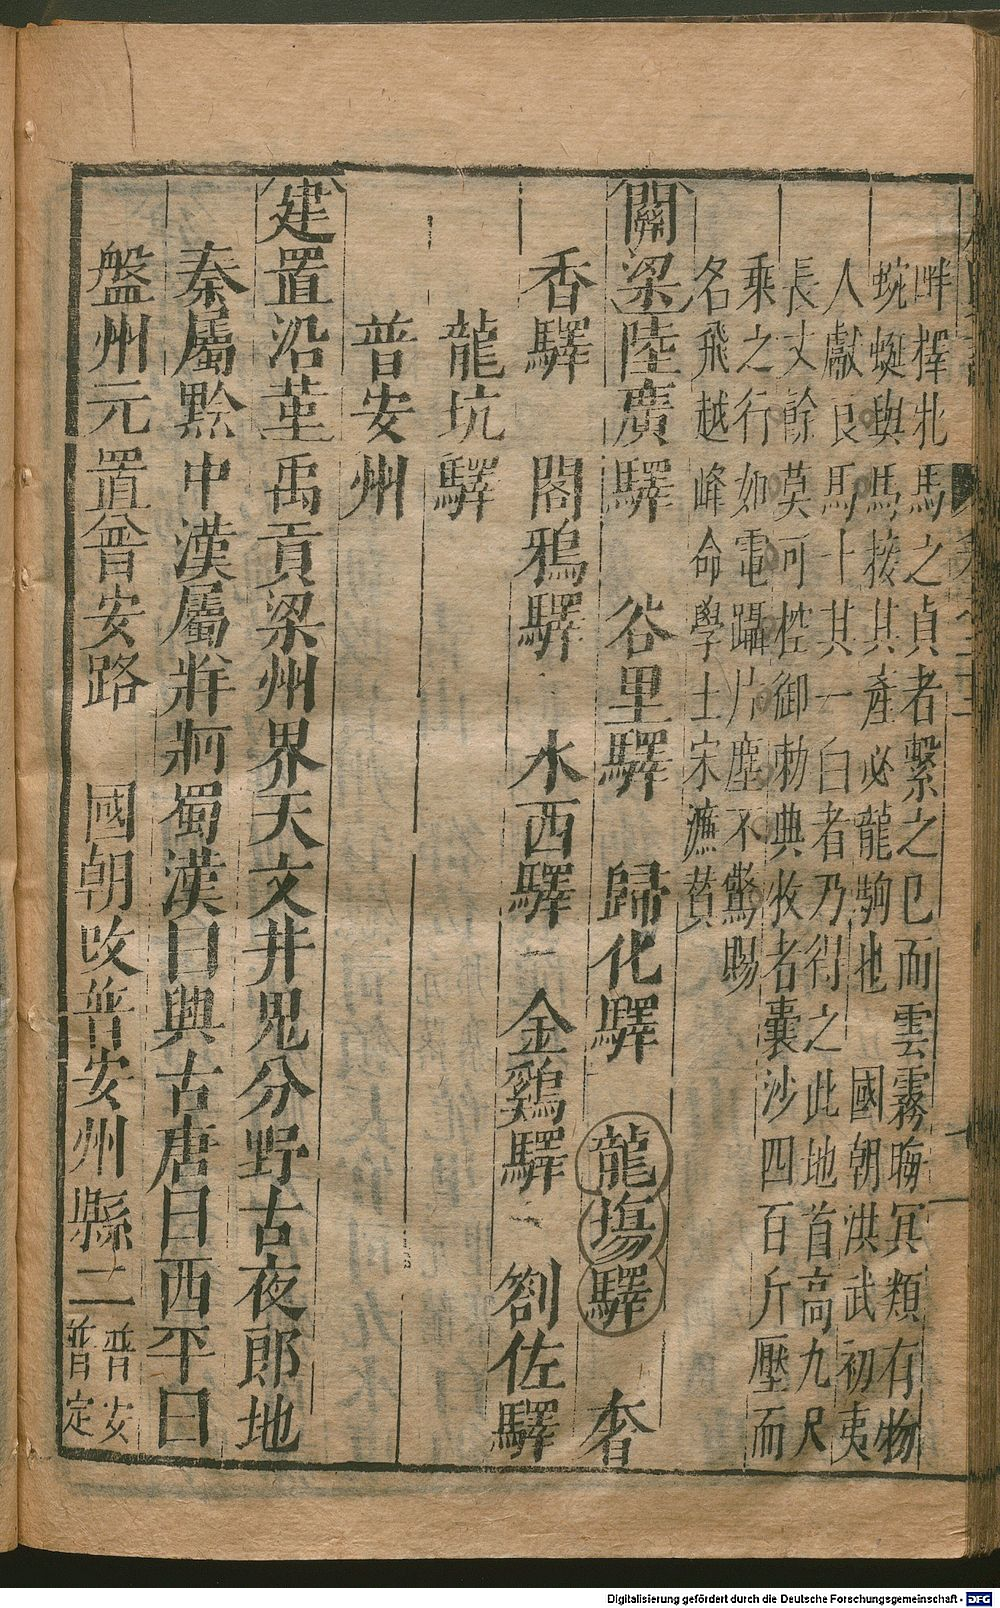 畔擇牝馬之貞者繫之已而雲霧晦冥類有物
蜿蜒與馬接其產必龍駒也 國朝洪武初夷
人獻良馬十其一白者乃得之此地首高九尺
長丈餘莫可控御勅典牧者囊沙四百斤壓而
乘之行如電躡片塵不驚賜
名飛越峰命學士宋濂贊
關梁陸廣驛 谷里驛 歸化驛 龍塲驛 奢
香驛 閣鴉驛 水西驛 金鷄驛 劄佐驛
龍坑驛
普安州
建置沿革禹貢梁州界天文井鬼分野古夜郎地
秦屬黔中漢屬牂牁蜀漢曰興古唐曰西平曰
盤州元置普安路 國朝改普安州縣二普安
普定
Digitalisierung gefördert durch die Deutsche Forschungsgemeinschaft - DFG